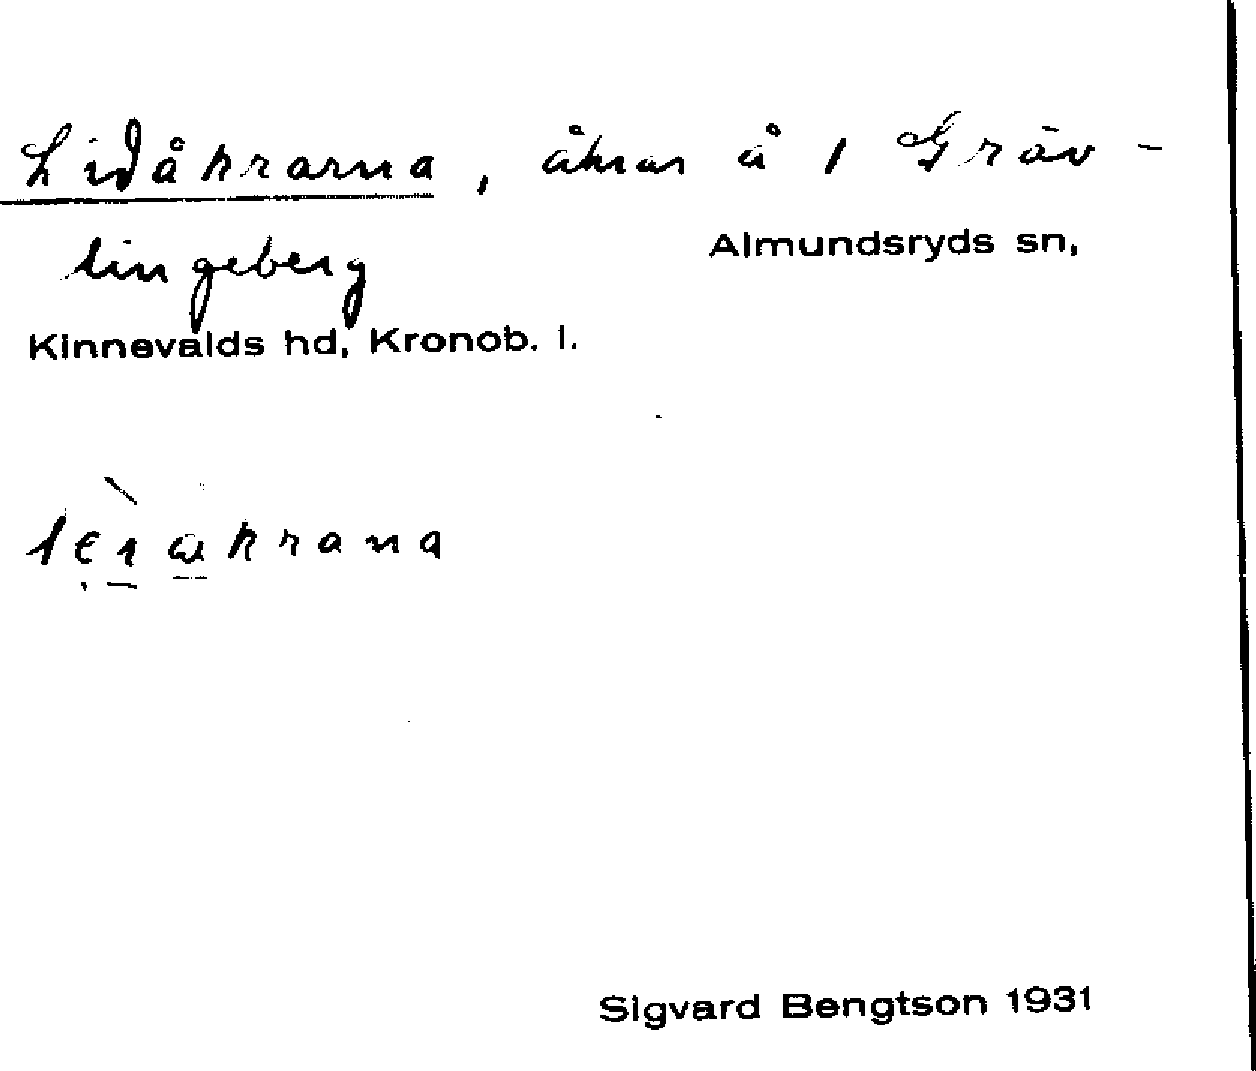 Lidåkrarna, åkrar å 1 Gräv-
lingeberg
Almundsryds sn,
Kinnevalds hd, Kronob. l.
Sigvard Bengtson 1931